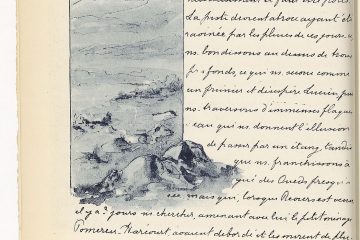 La piste devient atroce ayant été
ravinée par les pluies de ces jours-ci
ns. bondissons au dessus de trous
profonds, ce qui ns. secoue comme
un prunier et désespère Lucien puis
ns. traversons d'immenses flaques
d'eau qui ns. donnent l'illusion
de passer par un étang, tandis
que ns. franchissons à
gué des Oueds presque
sec mais qui, lorsque Revers est venu
il y a 2 jours ns chercher, amenant avec lui le petit ménage
Pomereu d'Harcourt, avaient débordé et les mirent de plus